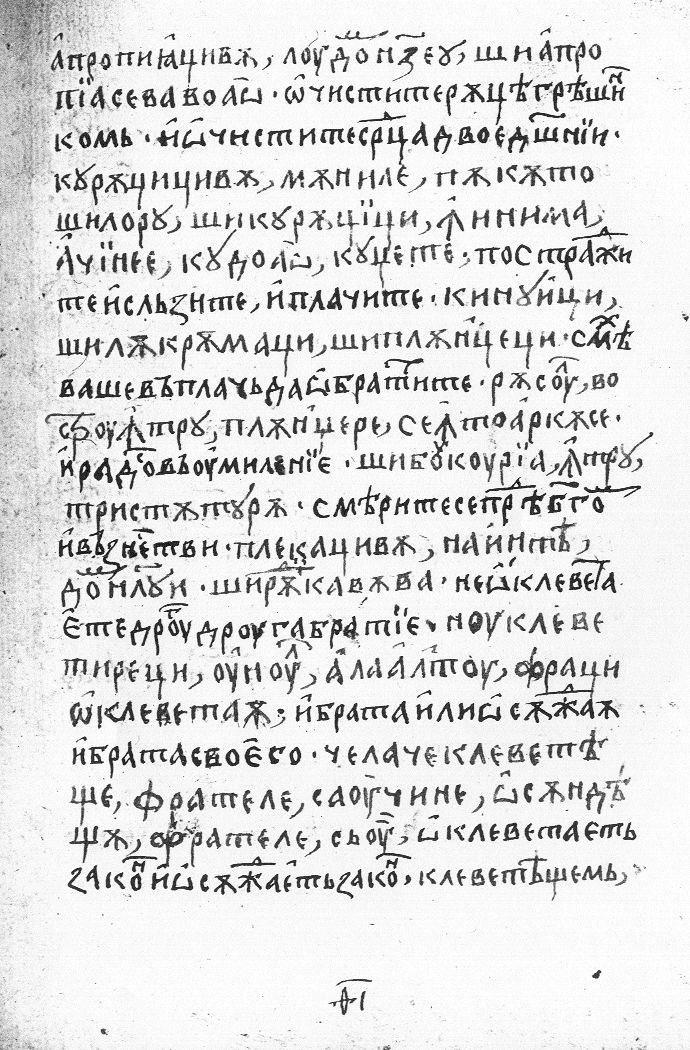 а҆пропиꙗ҆цивѫ, лоудо́н꙽ꙁеу, шиа҆про
пїасевавоаѡ҆ · ѡ҆чиститерѫцѣгрѣшнⷩ҇и
комь · и҆ѡ҆чиститесрⷣцадвоедш҃нїи ·
курѫцицивѫ, мѫниле, пѫкѫто
шилору, шикурѫцїци, ꙟ҆инима,
а҆чїнее, кудоаѡ҆, куџете · постражⷣи
теи҆сльꙁите, и҆плачите · кинуйци,
шилѫкрѫмаци, шиплѫнџеци · смѣⷯ
вашевъплачьдаѡ҆братитⷮе · рѫсоⷧу, во
строуꙟ҆тру, плѫнџере, сеꙟ҆тоаркѫсе ·
и҆радⷭовъоу҆миленїе · шибоукоурїа, ꙟ҆тру,
тристѫтурѫ · смѣритесепрѣⷣбг҃о
и҆въꙁнⷭетьви · плекацивѫ, наинтѣ,
домⷩлуи · ширѫдⷣикавѫва · неѡ҆клевета
е҆тедроуⷢдроугабратїе · ноуклеве
тиреци, оу҆ноуⷧ, а҆лаалтоу, фраци
ѡ҆клеветаѫ; и҆братаи҆лиѡ҆сѫжⷣаѫ
и҆братасвоего · челачеклеветѣ
ще, фрателе, саоу҆чине, ѡ҆сѫндѣ
щѫ, фрателе, съоуⷹ, ѡ҆клеветаеть
ꙁакоⷩи҆ѡ҆сѫжⷣаетьꙁакоⷩ, клеветѣщемь,
·ѳ҃і